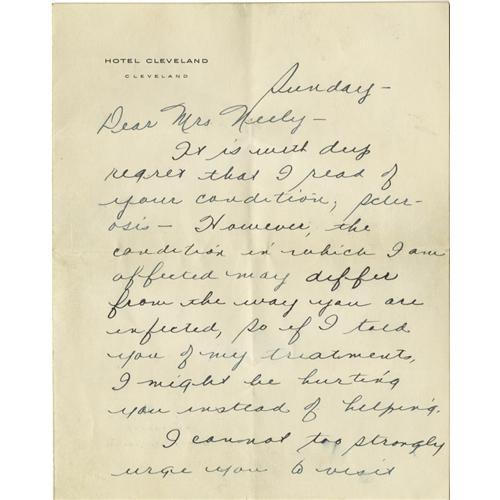 HOTEL CLEVELAND
CLEVELAND
Sunday -
Dear Mrs Neely -
It is with deep
regret that I read of
your condition, scler-
osis - However, the
condition in which I am
affected may differ
from the way you are
infected, so if I told
you of my treatments,
I might be hurting
you instead of helping.
I cannot too strongly
urge you to visit